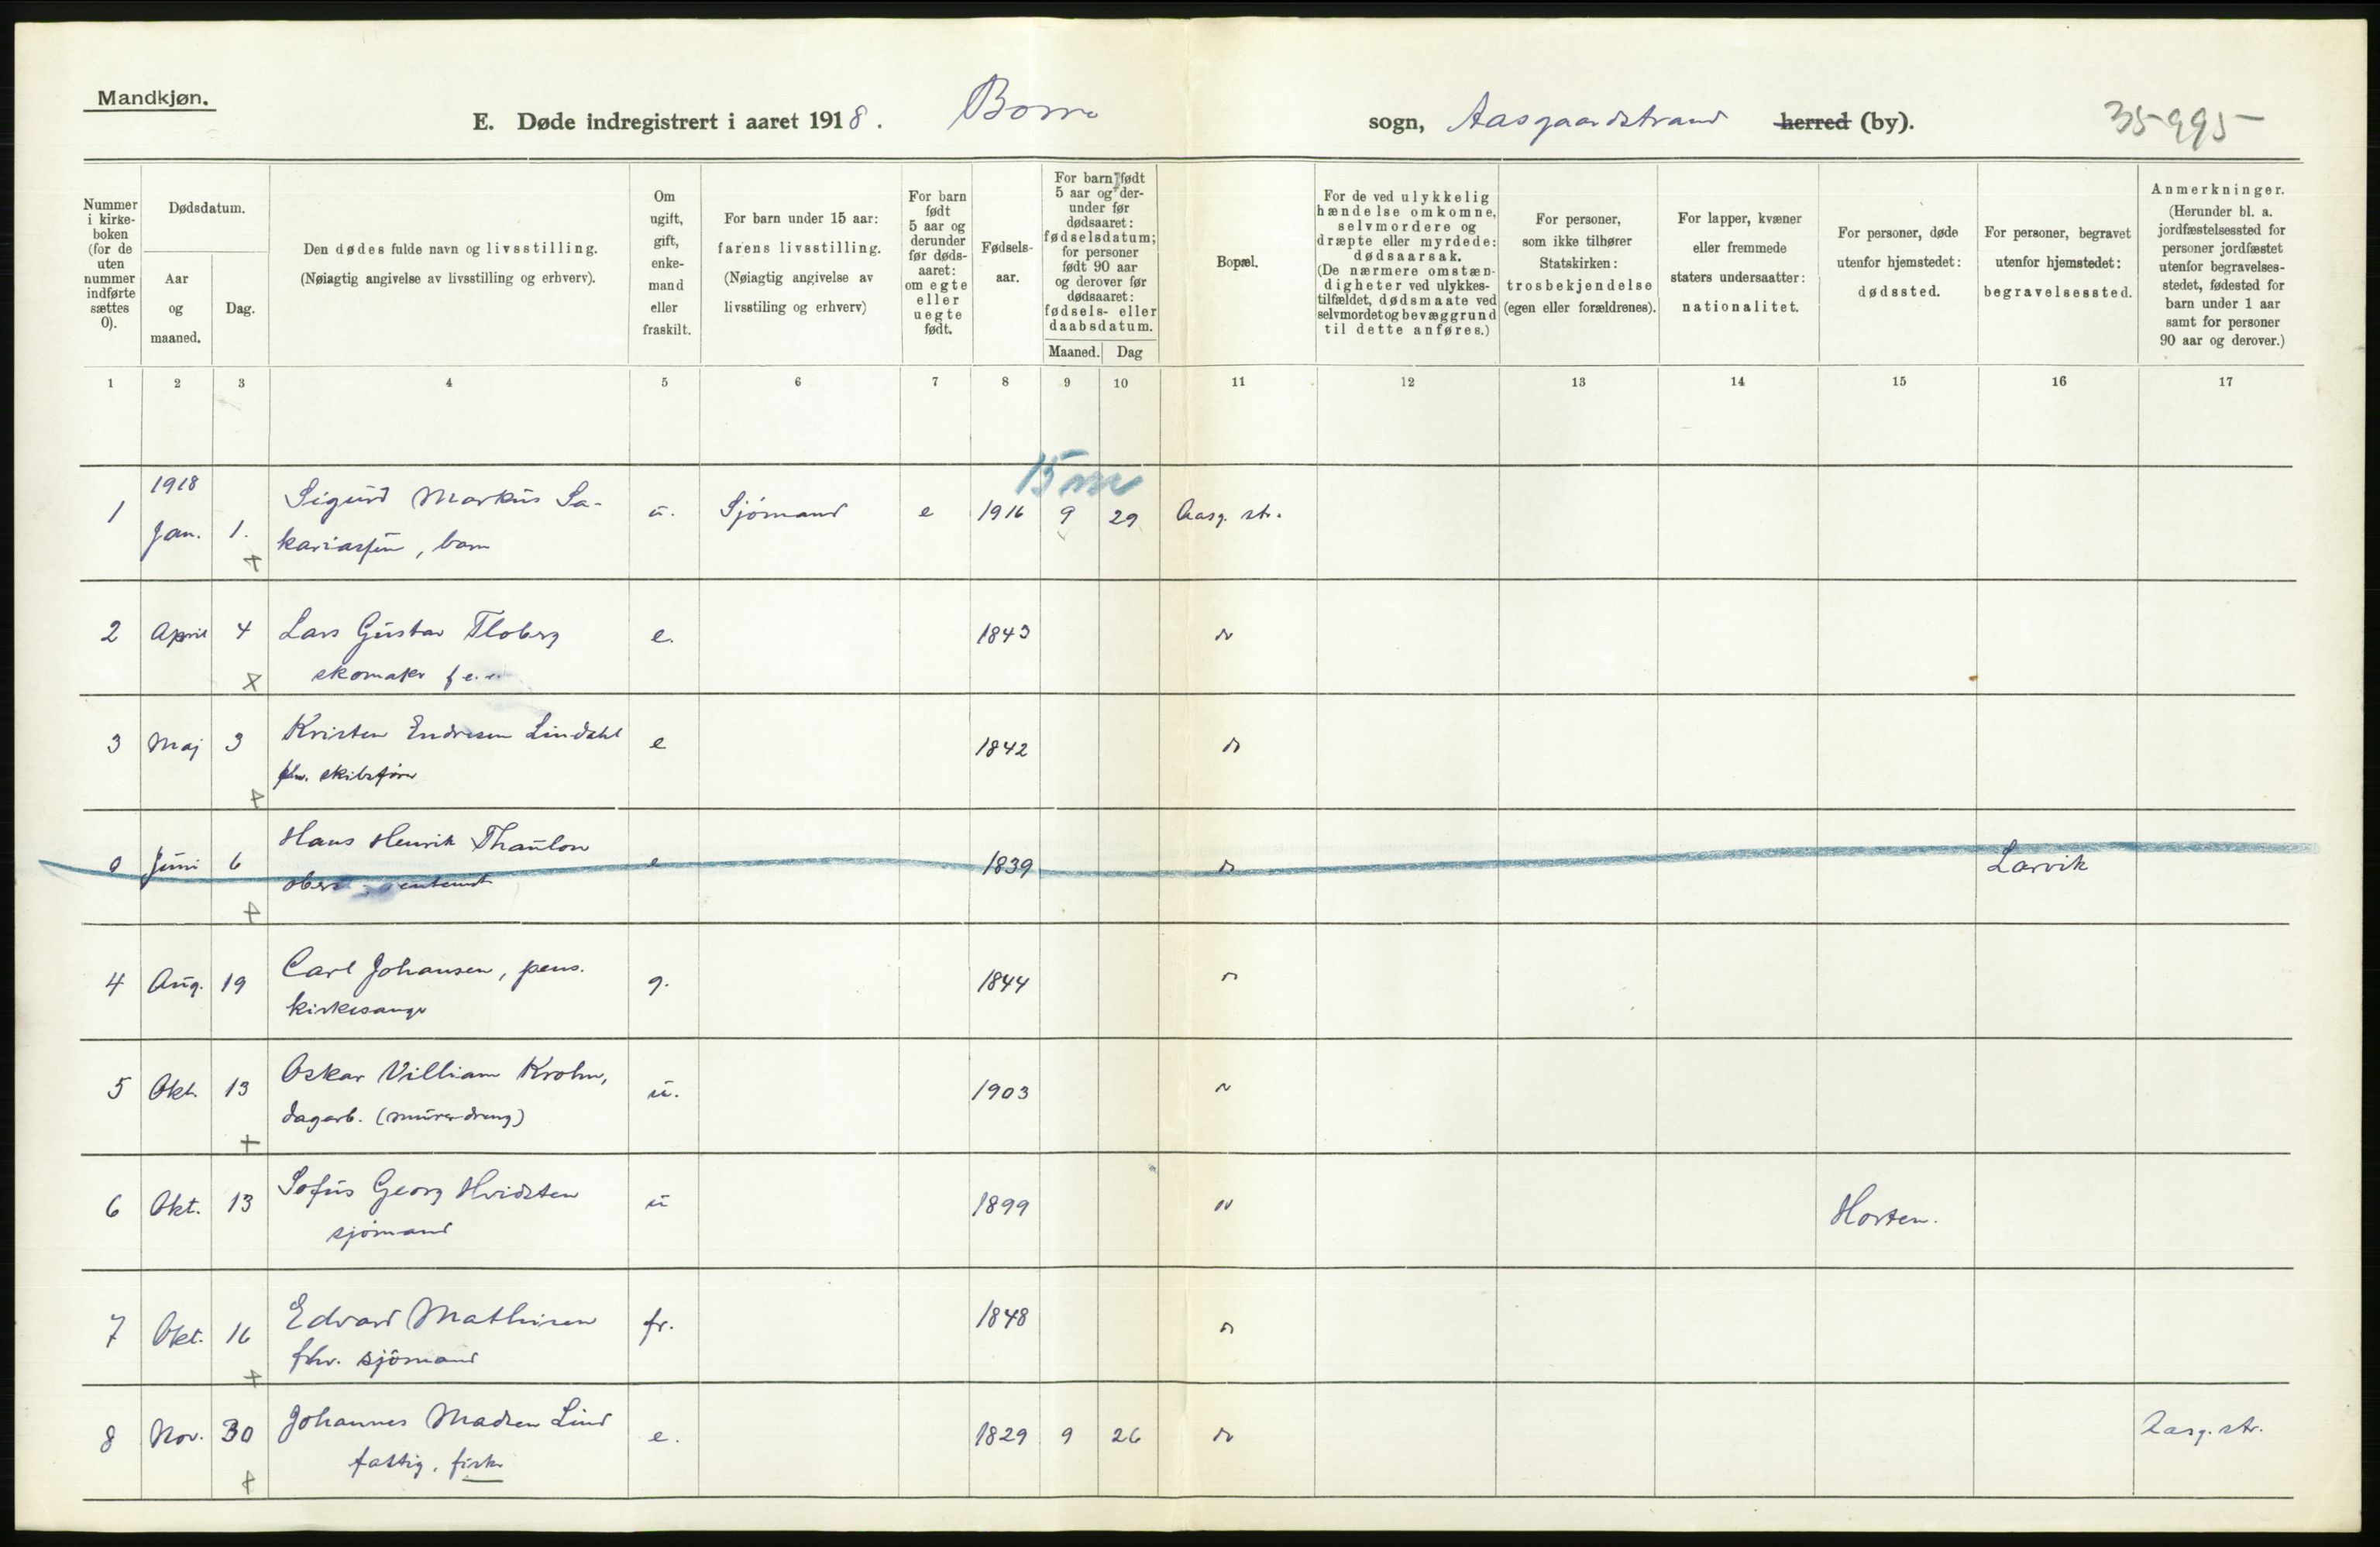 Mandkjøn.
E. Døde indregistrert i aaret 1918. Borre sogn, Aasgaardstrand herred (by). 35-995
Nummer i kirke-boken (for de uten nummer indførte sættes 0).
Dødsdatum.
Aar og maaned.
Dag.
Den dødes fulde navn og livsstilling.
(Nøiagtig angivelse av livsstilling og erhverv).
Om ugift, gift, enke-mand eller fraskilt.
For barn under 15 aar: farens livsstilling.
(Nøiagtig angivelse av livsstiling og erhverv)
For barn født 5 aar og derunder før døds-aaret: om egte eller uegte født.
Fødsels-aar.
For barn født 5 aar og der-under før dødsaaret: fødselsdatum; for personer født 90 aar og derover før dødsaaret: fødsels- eller daabsdatum.
Maaned. Dag
Bopæl.
For de ved ulykkelig hændelse omkomne, selvmordere og dræpte eller myrdede: dødsaarsak.
(De nærmere omstæn-digheter ved ulykkes-tilfældet, dødsmaate ved selvmordet og bevæggrund til dette anføres.)
For personer, som ikke tilhører Statskirken: trosbekjendelse (egen eller forældrenes).
For lapper, kvæner eller fremmede staters undersaatter: nationalitet.
For personer, døde utenfor hjemstedet: dødssted.
For personer, begravet utenfor hjemstedet: begravelsessted.
Anmerkninger.
(Herunder bl. a. jordfæstelsessted for personer jordfæstet utenfor begravelses-stedet, fødested for barn under 1 aar samt for personer 90 aar og derover.)
1 2 3 4 5 6 7 8 9 10 11 12 13 14 15 16 17
15 m
1918
1 Jan. 1. Sigurd Markus Sa- u. Sjömand e 1916 9 29 Aasg. str.
kariassen, barn
2 April 4 Lars Gustav Floberg e. 1843 "
skomaker
3 Maj 3 Kristen Endresen Lindahl e 1842 "
fhv. skibsfører
0 Juni 6 Hans Henrik Thaulow e 1839 " Larvik
4 Aug. 19 Carl Johansen, pens. g. 1844 "
kirkesanger
5 Okt. 13 Oskar Villiam Krohn, u. 1903 "
dagarb. (murerdreng)
6 Okt. 13 Sofus Georg Hvidsten u 1899 " Horten.
sjömand
7 Okt. 16 Edvard Mathisen fr. 1848 "
fhv. sjömand
8 Nov. 30 Johannes Madsen Lind e. 1829 9 26 " Aasg. str.
fattig, fisker